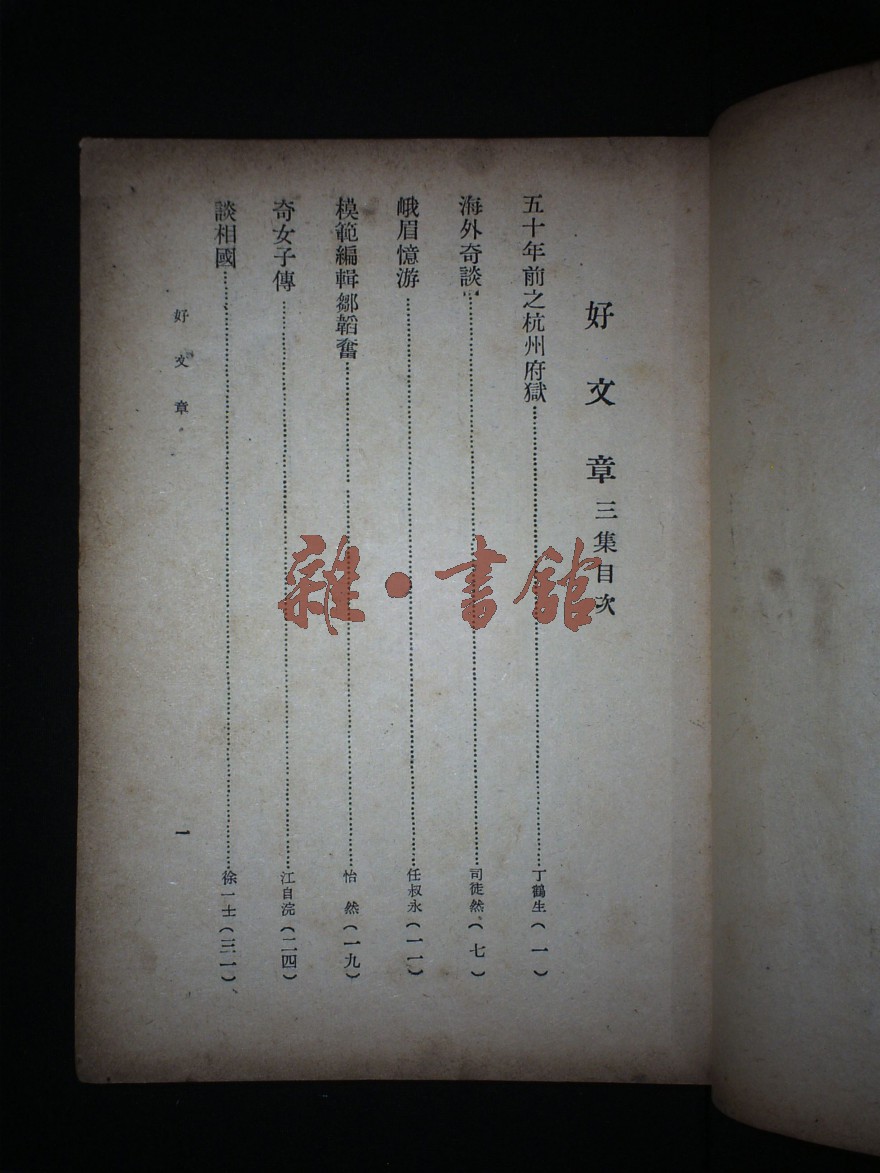 好文章三集目次
五十年前之杭州府獄……丁鶴生(一)
海外奇談……司徒然(七)
峨眉憶游……任叔永(一一)
模範編輯鄒韜奮……怡然(一九)
奇女子傳……江自浣(二四)
談相國……徐一士(三一)
好文章
一
雜·書館